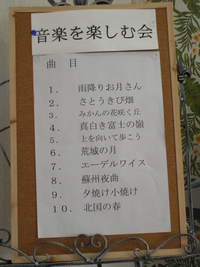 音楽を楽しむ会
曲 目
1. 雨降りお月さん
2. さとうきび畑
3. みかんの花咲く丘
4. 真白き富士の嶺
5. 上を向いて歩こう
6. 荒城の月
7. エーデルワイス
8. 蘇州夜曲
9. 夕焼け小焼け
10. 北国の春